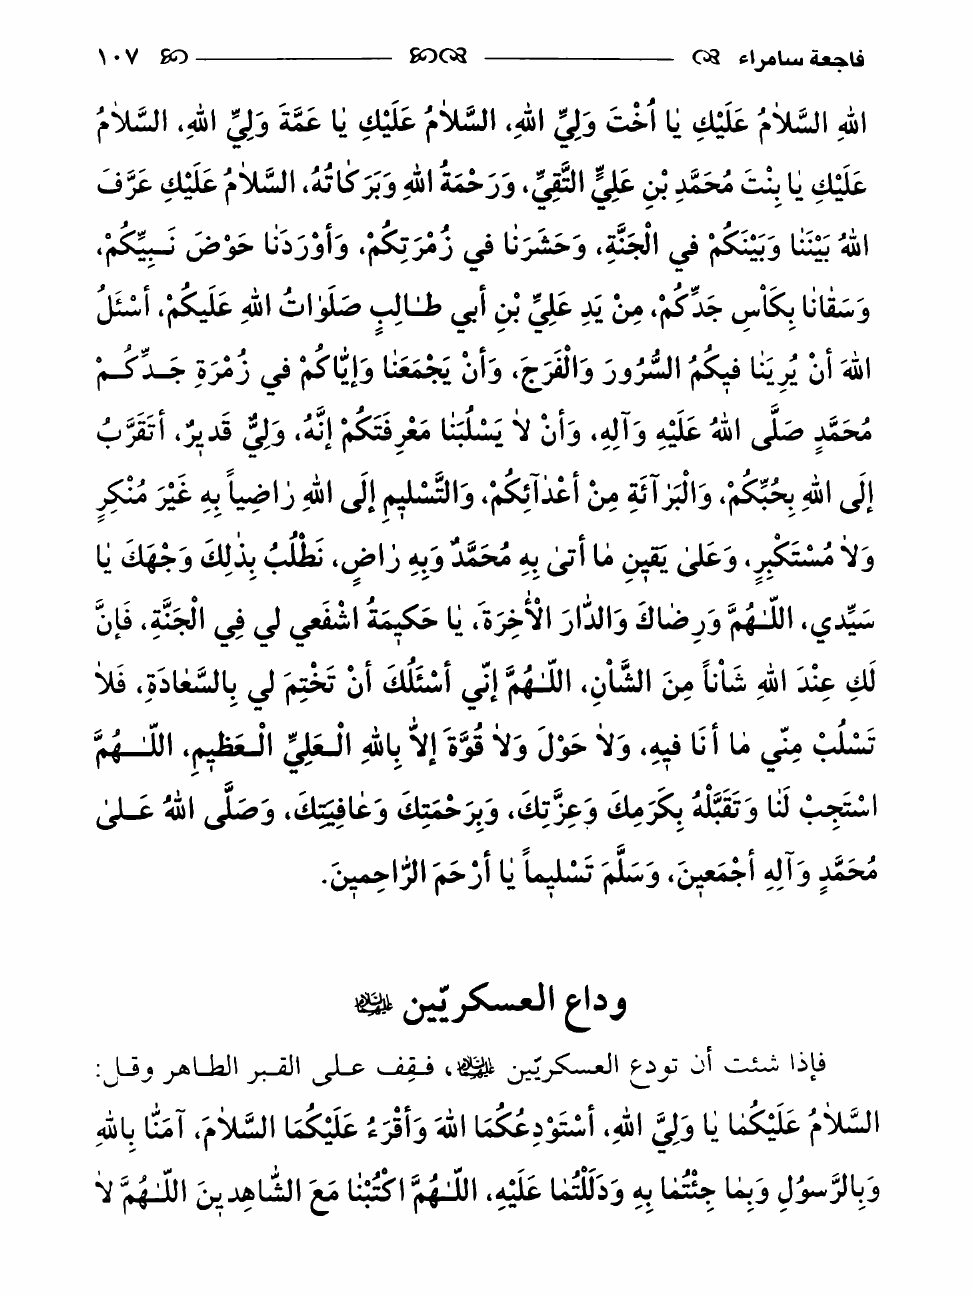 فاجعة سامراء ١٠٧
اللهِ السَّلاٰمُ عَلَيْكِ يٰا أُخْتَ وَلِيِّ اللهِ، السَّلاٰمُ عَلَيْكِ يٰا عَمَّةَ وَلِيِّ اللهِ، السَّلاٰمُ
عَلَيْكِ يٰا بِنْتَ مُحَمَّدِ بْنِ عَلِيٍّ التَّقِيِّ، وَرَحْمَةُ اللهِ وَبَرَكٰاتُهُ، السَّلاٰمُ عَلَيْكِ عَرَّفَ
اللهُ بَيْنَنٰا وَبَيْنَكُمْ في الْجَنَّةِ، وَحَشَرَنٰا في زُمْرَتِكُمْ، وَأَوْرَدَنٰا حَوْضَ نَـبِيِّكُمْ،
وَسَقٰانٰا بِكَأْسِ جَدِّكُمْ، مِنْ يَدِ عَلِيِّ بْنِ أبي طـالِبٍ صَلَوٰاتُ اللهِ عَلَيكُمْ، أسْئَلُ
اللهَ أنْ يُرِيَنٰا فيكُمُ السُّرُورَ وَالْفَرَجَ، وَأنْ يَجْمَعَنٰا وَإيّٰاكُمْ في زُمْرَةِ جَـدِّكُـمْ
مُحَمَّدٍ صَلَّى اللهُ عَلَيْهِ وَآلِهِ، وَأنْ لاٰ يَسْلُبَنٰا مَعْرِفَتَكُمْ إنَّهُ، وَلِيٌّ قَديرٌ، أتَقَرَّبُ
إلَى اللهِ بِحُبِّكُمْ، وَالْبَرٰآئَةِ مِنْ أعْدٰآئِكُمْ، وَالتَّسْليمِ إلَى اللهِ رٰاضِياً بِهِ غَيْرَ مُنْكِرٍ
وَلاٰ مُسْتَكْبِرٍ، وَعَلىٰ يَقينِ مٰا أتىٰ بِهِ مُحَمَّدٌ وَبِهِ رٰاضٍ، نَطْلُبُ بِذٰلِكَ وَجْهَكَ يٰا
سَيِّدي، اللّـٰهُمَّ وَرِضٰاكَ وَالدّٰارَ الْأخِرَةَ، يٰا حَكيمَةُ اشْفَعي لي فِي الْجَنَّةِ، فَإنَّ
لَكِ عِنْدَ اللهِ شَأْناً مِنَ الشَّأْنِ، اللّـٰهُمَّ إنّي أسْئَلُكَ أنْ تَخْتِمَ لي بِالسَّعٰادَةِ، فَلاٰ
تَسْلُبْ مِنّي مٰا أنَا فيهِ، وَلاٰ حَوْلَ وَلاٰ قُوَّةَ إلاّٰ بِاللهِ الْـعَلِيِّ الْـعَظيمِ، اللّـٰـهُمَّ
اسْتَجِبْ لَنٰا وَتَقَبَّلْهُ بِكَرَمِكَ وَعِزَّتِكَ، وَبِرَحْمَتِكَ وَعٰافِيَتِكَ، وَصَلَّى اللهُ عَـلىٰ
مُحَمَّدٍ وَآلِهِ أجْمَعينَ، وَسَلَّمَ تَسْليماً يٰا أرْحَمَ الرّٰاحِمينَ.
وداع العسكريّين عليهما السلام
فإذا شئت أن تودع العسكريّين عليهما السلام، فـقِف عـلى القـبر الطـاهر وقـل:
السَّلاٰمُ عَلَيْكُمٰا يٰا وَلِيَّ اللهِ، أسْتَوْدِعُكُمَا اللهَ وَأقْرَءُ عَلَيْكُمَا السَّلاٰمَ، آمَنّٰا بِاللهِ
وَبِالرَّسوُلِ وَبِمٰا جِئْتُمٰا بِهِ وَدَلَلْتُمٰا عَلَيْهِ، اللّـٰهُمَّ اكْتُبْنٰا مَعَ الشّٰاهِدينَ اللّـٰهُمَّ لاٰ